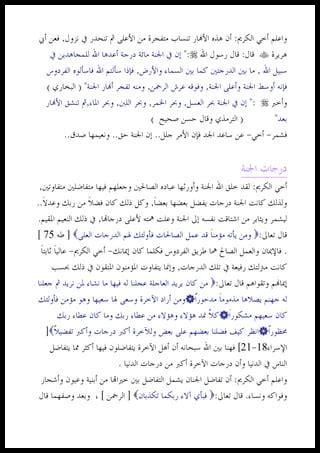 واعلم أخي الكريم: أن هذه الأنهار تنساب متفجرة من الأعلى ثم تنحدر في نزول، فعن أبي
هريرة قال: قال رسول الله :" إن في الجنة مائة درجة أعدها الله للمجاهدين في
سبيل الله ، ما بين الدرجتين كما بين السماء والأرض، فإذا سألتم الله فاسألوه الفردوس
فإنه أوسط الجنة وأعلى الجنة، وفوقه عرش الرحمن، ومنه تفجر أنهار الجنة" ( البخاري )
وأخبر :" إن في الجنة بحر العسل، وبحر الخمر، وبحر اللبن، وبحر الماء,ثم تنشق الأنهار
بعد" ( الترمذي وقال حسن صحيح )
فشمر- أخي- عن ساعد الجد فإن الأمر جلل.. إن الجنة حق.. ونعيمها صدق..
درجات الجنة
أخي الكريم: لقد خلق الله الجنة وأورثها عباده الصالحين وجعلهم فيها متفاضلين متفاوتين,
ولذلك كانت الجنة درجات يفضل بعضها بعضاً, وكل ذلك كان فضلاً من ربك وعدلاً..
ليشمر ويثابر من اشتاقت نفسه إلى الجنة وعلت همته لأعلى درجاتها, في ذلك النعيم المقيم.
قال تعالى: ﴿ ومن يأته مؤمناً قد عمل الصالحات فأولئك لهم الدرجات العلى﴾ [ طه 75 ]
. فالإيمان والعمل الصالح هما طريق الفردوس فكلما كان إيمانك- أخي الكريم- عالياً ثابتاً
كانت منزلتك رفيعة في تلك الدرجات, وإنما يتفاوت المؤمنون المتقون في ذلك بحسب
إيمانهم وتقواهم قال تعالى: ﴿ من كان يريد العاجلة عجلنا له فيها ما نشاء لمن نريد ثم جعلنا
له جهنم يصلاها مذموماً مدحوراً ومن أراد الآخرة وسعى لها سعيها وهو مؤمن فأولئك
كان سعيهم مشكوراً كلاً نمد هؤلاء وهؤلاء من عطاء ربك وما كان عطاء ربك
محظوراً انظر كيف فضلنا بعضهم على بعض وللآخرة أكبر درجات وأكبر تفضيلاً﴾ [
الإسراء18-21] فهنا بين الله سبحانه أن أهل الآخرة يتفاضلون فيها أكثر مما يتفاضل
الناس في الدنيا وأن درجات الآخرة أكبر من درجات الدنيا .
واعلم أخي الكريم: أن تفاضل الجنان يشمل التفاضل بين خيراتها من أبنية وعيون وأشجار
وفواكه ونساء. قال تعالى: ﴿ فبأي آلاء ربكما تكذبان﴾ [ الرحمن ] ، وبعد وصفهما قال